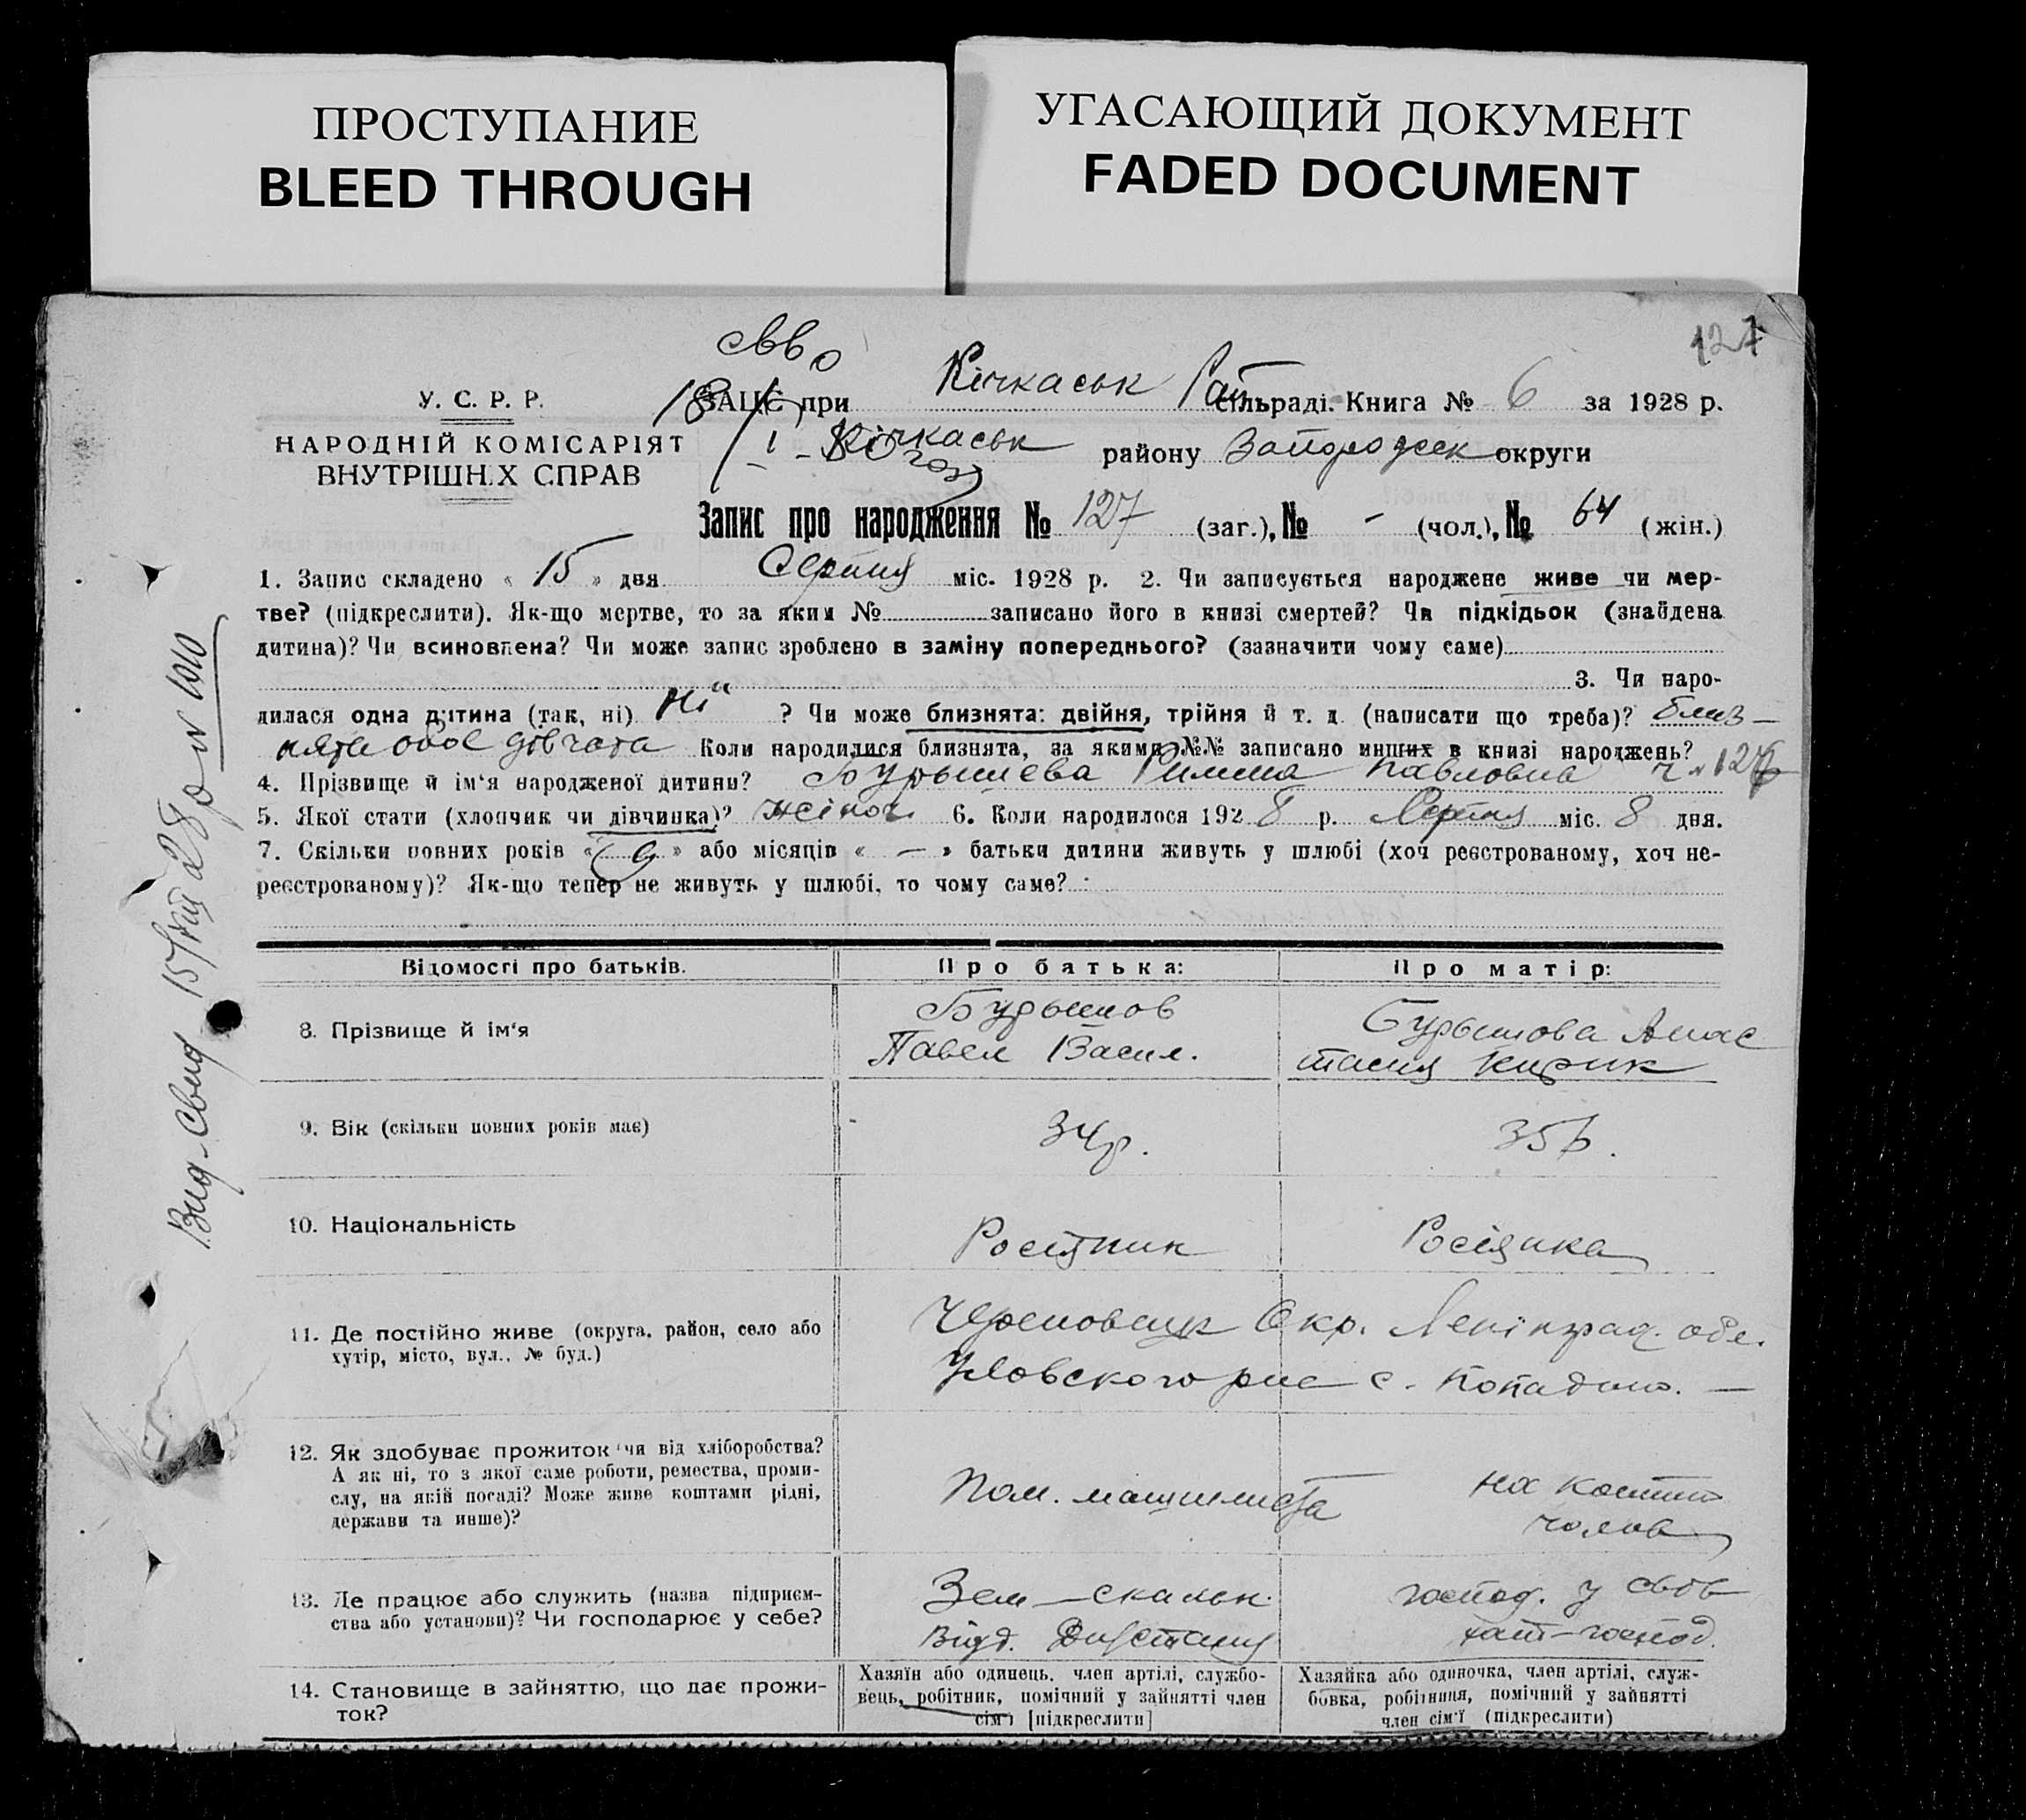 ПРОСТУПАНИЕ
BLEED THROUGH
УГАСАЮЩИЙ ДОКУМЕНТ
FADED DOCUMENT
127
У. С. Р. Р.
НАРОДНІЙ КОМІСАРІЯТ
ВНУТРІШН.Х СПРАВ
ЗАЦС при Кічкаськ Рай сільраді. Книга № 6 за 1928 р.
Кічкаськ району округи
Запис про народження № 127 (заг.), № - (чол.), № 64 (жін.)
1. Запис складено « 15 » дня Серпня міс. 1928 р. 2. Чи записується народжене живе чи мер-
тве? (підкреслити). Як-що мертве, то за яким № записано його в книзі смертей? Чи підкідьок (знайдена
дитина)? Чи всиновлена? Чи може запис зроблено в заміну попереднього? (зазначити чому саме)
3. Чи наро-
дилася одна дитина (так, ні) Ні ? Чи може близнята: двійня, трійня й т. д. (написати що треба)? близ-
нята обоє дівчата Коли народилися близнята, за якими №№ записано инших в книзі народжень?
4. Прізвище й ім‘я народженої дитини? Бурышева Римма Павловна
5. Якої стати (хлопчик чи дівчинка)? жіноч. 6. Коли народилося 192 8 р. Серпня міс. 8 дня.
7. Скільки повних років « 9 » або місяців « — » батьки дитини живуть у шлюбі (хоч реєстрованому, хоч не-
реєстрованому)? Як-що тепер не живуть у шлюбі, то чому саме?
Відомості про батьків.
Про батька:
Про матір:
8. Прізвище й ім‘я
Павел Васил.
9. Вік (скільки повних років має)
34р.
35
10. Національність
Росіянин
Росіянка
11. Де постійно живе (округа, район, село або
хутір, місто, вул., № буд.)
Череповецк Окр. Ленінград. обл.
12. Як здобуває прожиток чи від хліборобства?
А як ні, то з якої саме роботи, ремества, проми-
слу, на якій посаді? Може живе коштами рідні,
держави та инше)?
Пом. машиниста
на кошти
чолов
13. Де працює або служить (назва підприєм-
ства або установи)? Чи господарює у себе?
Зем-скальн.
Відд.
господ. у своє
хатн-господ.
14. Становище в зайняттю, що дає прожи-
ток?
Хазяїн або одинець, член артілі, службо-
вець, робітник, помічний у зайнятті член
сім‘ї [підкреслити]
Хазяйка або одиночка, член артілі, служ-
бовка, робітниця, помічний у зайнятті
член сім‘ї (підкреслити)